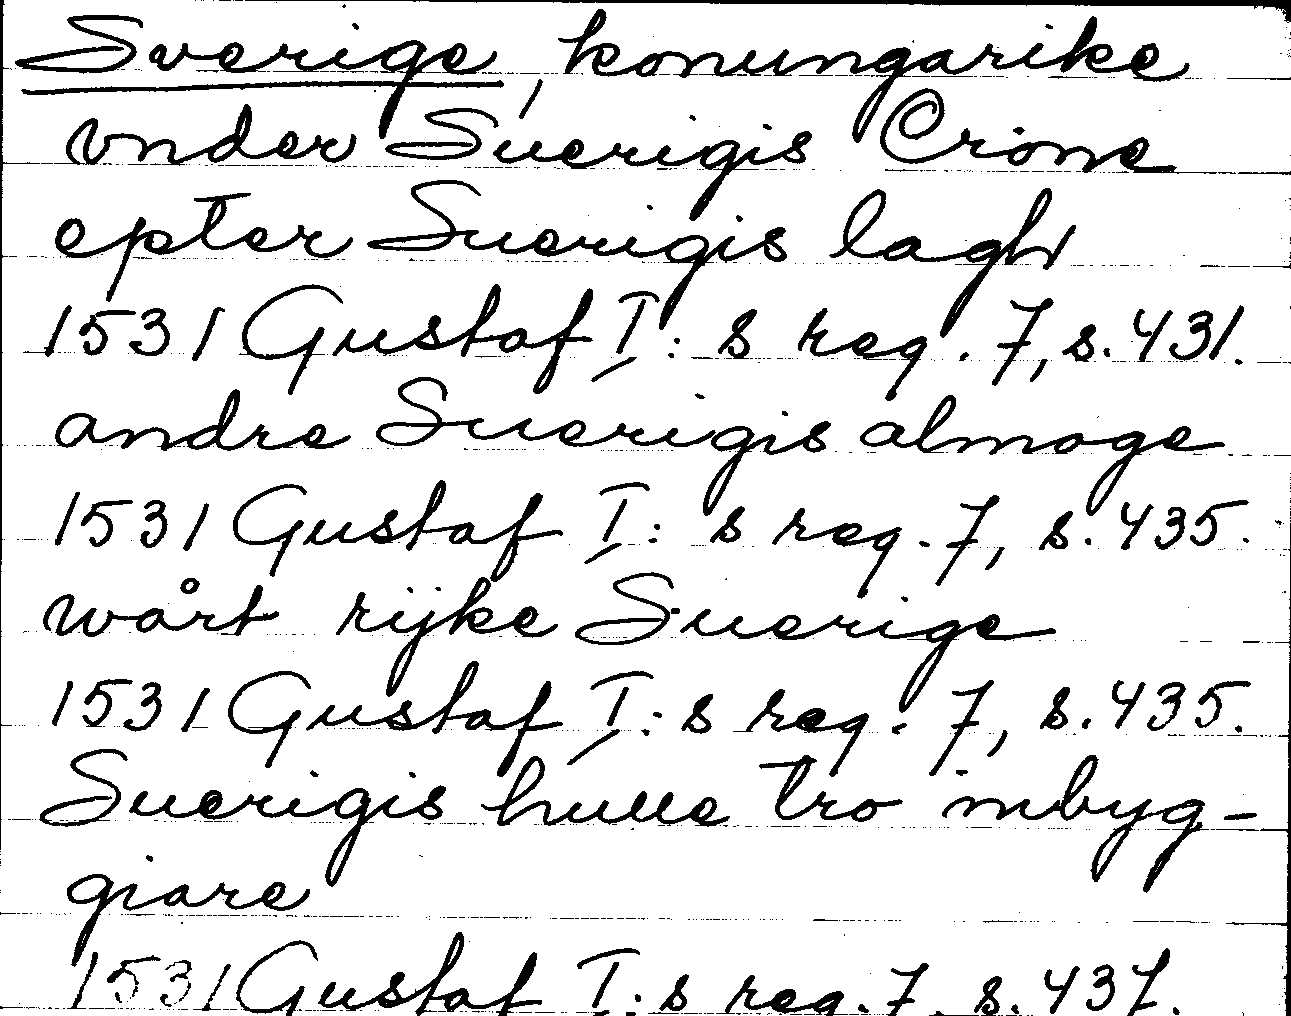 Sverige, konungarike
vnder Suerigis Crone
epter Suerigis lagh
1531 Gustaf I: s reg. 7, s. 431.
andre Suerigis almoge
1531 Gustaf I: s reg. 7, s. 435.
wårt rijke Suerige
1531 Gustaf I: s reg. 7, s. 435.
Suerigis hulle tro inbyg-
giare
1531 Gustaf I: s reg. 7, s. 437.